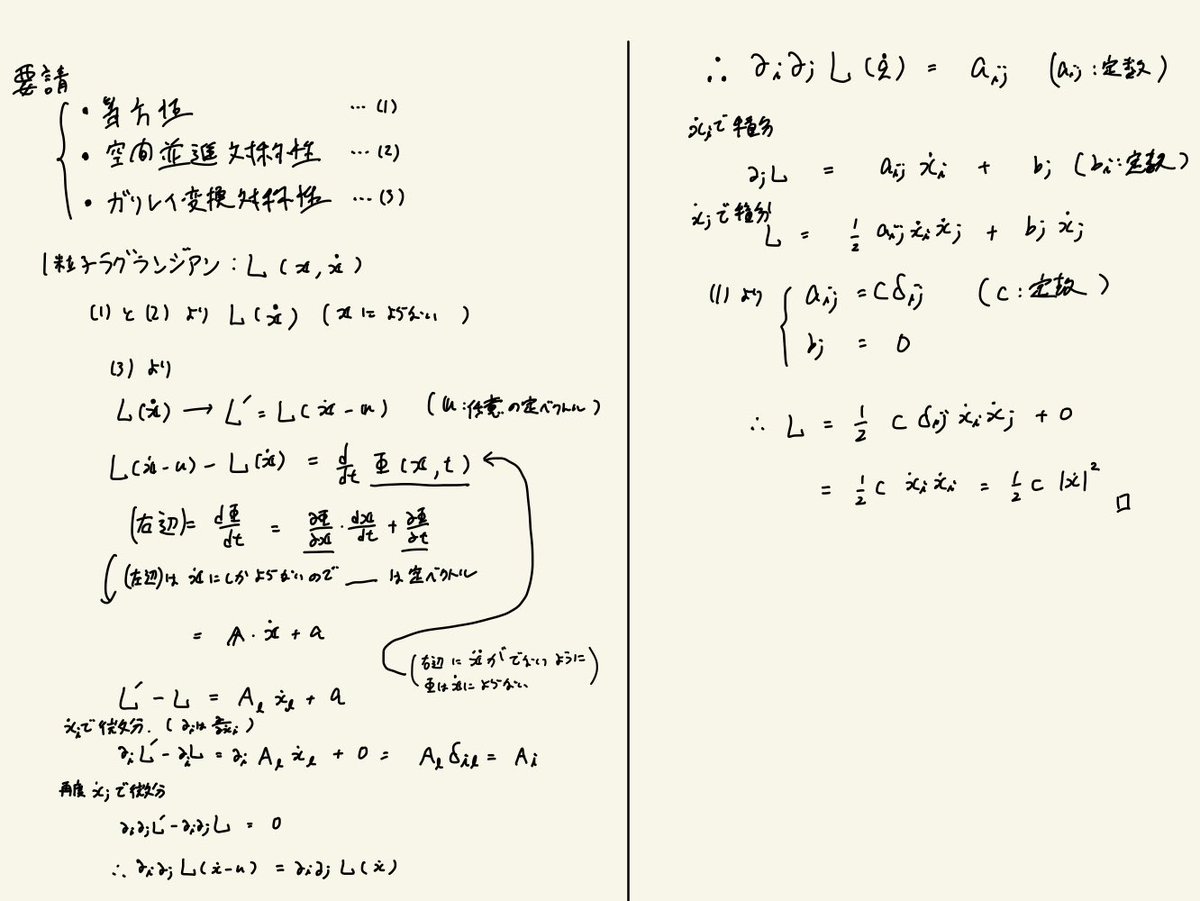 要請
・等方性 …(1)
・空間並進対称性 …(2)
・ガリレイ変換対称性 …(3)
1粒子ラグランジアン: L(x, ẋ)
(1)と(2)より L(ẋ) (xによらない)
(3)より
L(ẋ) → L′ = L(ẋ-u) (u:任意の定ベクトル)
L(ẋ-u) - L(ẋ) = d/dt Φ(x, t)
(右辺) = dΦ/dt = ∂Φ/∂x · dx/dt + ∂Φ/∂t
(左辺)は ẋにしかよらないので __ は定ベクトル
= A·ẋ + a
(右辺に ẍ がでないように
Φは ẋによらない)
L′ - L = Aₗ ẋₗ + a
ẋᵢで微分. (∂ᵢは ∂/∂ẋᵢ)
∂ᵢL′ - ∂ᵢL = ∂ᵢ Aₗ ẋₗ + 0 = Aₗ δᵢₗ = Aᵢ
再度 ẋⱼで微分
∂ᵢ∂ⱼL′ - ∂ᵢ∂ⱼL = 0
∴ ∂ᵢ∂ⱼ L(ẋ-u) = ∂ᵢ∂ⱼ L(ẋ)
∴ ∂ᵢ∂ⱼ L(ẋ) = aᵢⱼ (aᵢⱼ:定数)
ẋᵢで積分
∂ⱼL = aᵢⱼ ẋᵢ + bⱼ (bᵢ:定数)
ẋⱼで積分
L = 1/2 aᵢⱼ ẋᵢ ẋⱼ + bⱼ ẋⱼ
(1)より { aᵢⱼ = C δᵢⱼ (C:定数)
bⱼ = 0
∴ L = 1/2 C δᵢⱼ ẋᵢ ẋⱼ + 0
= 1/2 C ẋᵢ ẋᵢ = 1/2 C |ẋ|² □